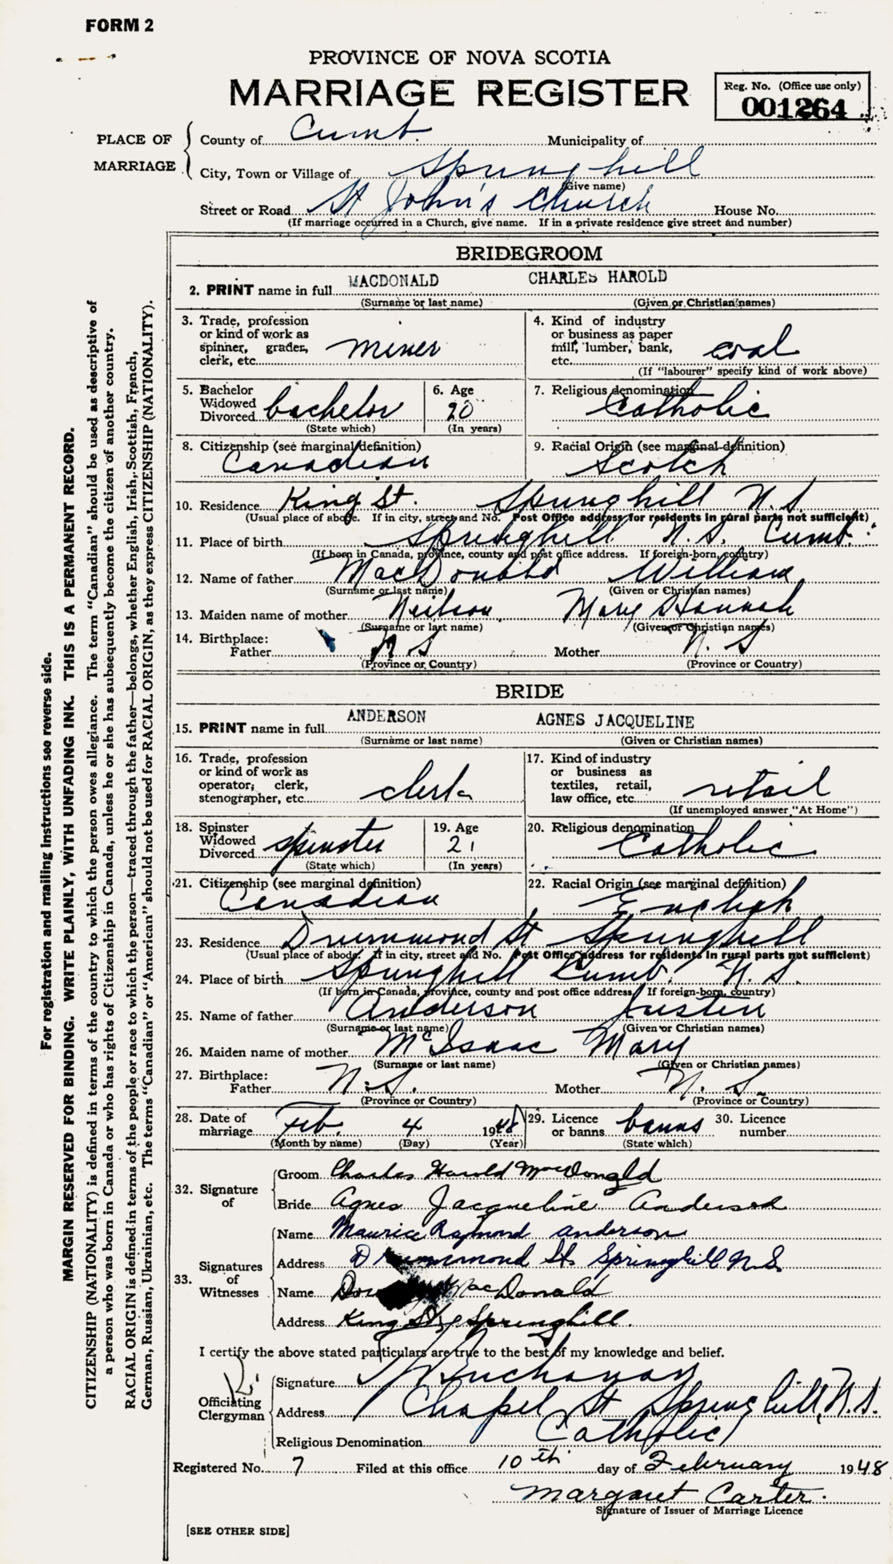 FORM 2
PROVINCE OF NOVA SCOTIA
MARRIAGE REGISTER
Reg. No. (Office use only)
001264
PLACE OF MARRIAGE
County of Cumb. Municipality of
City, Town or Village of Springhill
(Give name)
Street or Road St John's Church House No.
(If marriage occurred in a Church, give name. If in a private residence give street and number)
BRIDEGROOM
2. PRINT name in full MACDONALD CHARLES HAROLD
(Surname or last name) (Given or Christian names)
3. Trade, profession or kind of work as spinner, grader, clerk, etc. miner
4. Kind of industry or business as paper mill, lumber, bank, etc. coal
(If "labourer" specify kind of work above)
5. Bachelor Widowed Divorced bachelor
(State which)
6. Age 20
(In years)
7. Religious denomination Catholic
8. Citizenship (see marginal definition) Canadian
9. Racial Origin (see marginal definition) Scotch
10. Residence King St. Springhill N.S.
(Usual place of abode. If in city, street and No. Post Office address for residents in rural parts not sufficient)
11. Place of birth Springhill N.S. Cumb.
(If born in Canada, province, county and post office address. If foreign-born, country)
12. Name of father MacDonald William
(Surname or last name) (Given or Christian names)
13. Maiden name of mother Neilson Mary Hannah
(Surname or last name) (Given or Christian names)
14. Birthplace: Father N S Mother N. S
(Province or Country) (Province or Country)
BRIDE
15. PRINT name in full ANDERSON AGNES JACQUELINE
(Surname or last name) (Given or Christian names)
16. Trade, profession or kind of work as operator; clerk, stenographer, etc. clerk
17. Kind of industry or business as textiles, retail, law office, etc. retail
(If unemployed answer "At Home")
18. Spinster Widowed Divorced spinster
(State which)
19. Age 21
(In years)
20. Religious denomination Catholic
21. Citizenship (see marginal definition) Canadian
22. Racial Origin (see marginal definition) English
23. Residence Drummond St Springhill
(Usual place of abode. If in city, street and No. Post Office address for residents in rural parts not sufficient)
24. Place of birth Springhill Cumb. N.S.
(If born in Canada, province, county and post office address. If foreign-born, country)
25. Name of father Anderson Justin
(Surname or last name) (Given or Christian names)
26. Maiden name of mother McIsaac Mary
(Surname or last name) (Given or Christian names)
27. Birthplace: Father N.S. Mother N. S
(Province or Country) (Province or Country)
28. Date of marriage Feb. 4 1948
(Month by name) (Day) (Year)
29. Licence or banns banns
(State which)
30. Licence number
32. Signature of
Groom Charles Harold MacDonald
Bride Agnes Jacqueline Anderson
33. Signatures of Witnesses
Name Maurice Raymond anderson
Address Drummond St. Springhill N.S.
Name MacDonald
Address King St. Springhill.
I certify the above stated particulars are true to the best of my knowledge and belief.
Officiating Clergyman
Signature Buchanan
Address Chapel St Springhill, N.S.
Religious Denomination Catholic
Registered No. 7 Filed at this office 10th day of February 1948
Margaret Carter.
Signature of Issuer of Marriage Licence
[SEE OTHER SIDE]
For registration and mailing instructions see reverse side.
MARGIN RESERVED FOR BINDING. WRITE PLAINLY, WITH UNFADING INK. THIS IS A PERMANENT RECORD.
CITIZENSHIP (NATIONALITY) is defined in terms of the country to which the person owes allegiance. The term "Canadian" should be used as descriptive of
a person who was born in Canada or who has rights of Citizenship in Canada, unless he or she has subsequently become the citizen of another country.
RACIAL ORIGIN is defined in terms of the people or race to which the person—traced through the father—belongs, whether English, Irish, Scottish, French,
German, Russian, Ukrainian, etc. The terms "Canadian" or "American" should not be used for RACIAL ORIGIN, as they express CITIZENSHIP (NATIONALITY).